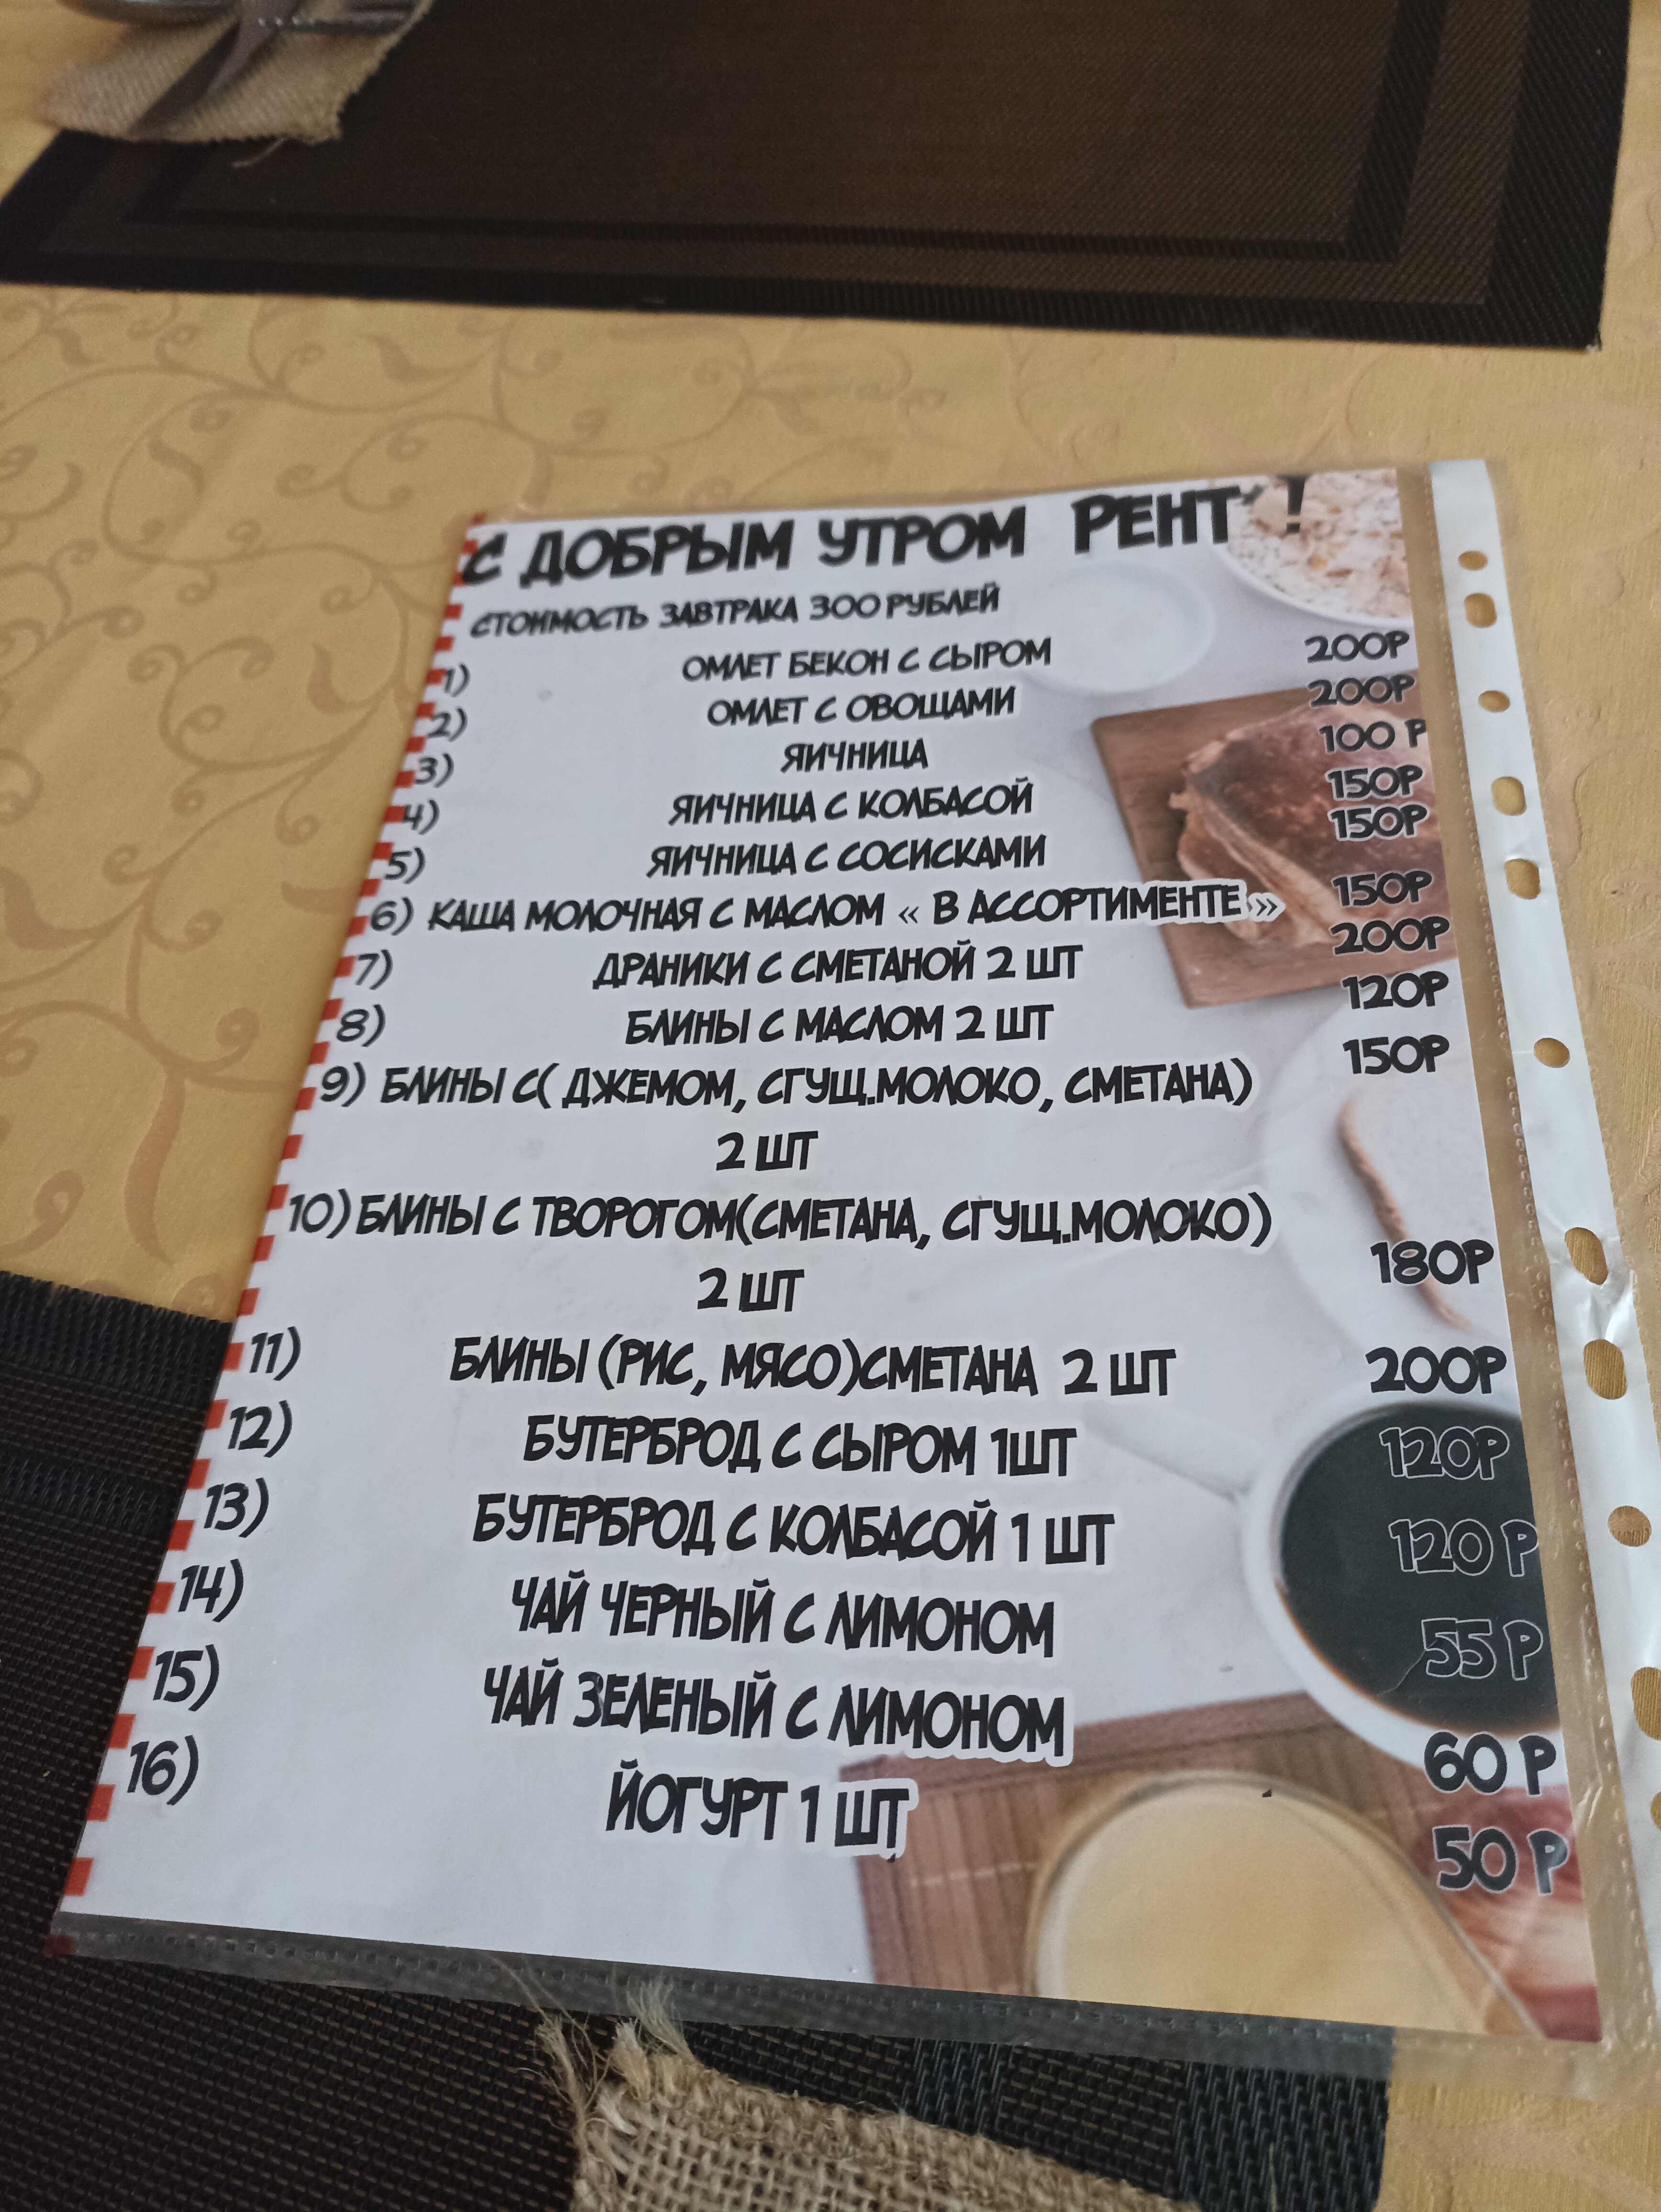 С ДОБРЫМ УТРОМ РЕНТ !
СТОИМОСТЬ ЗАВТРАКА 300 РУБЛЕЙ
1) ОМЛЕТ БЕКОН С СЫРОМ 200Р
2) ОМЛЕТ С ОВОЩАМИ 200Р
3) ЯИЧНИЦА 100 Р
4) ЯИЧНИЦА С КОЛБАСОЙ 150Р
5) ЯИЧНИЦА С СОСИСКАМИ 150Р
6) КАША МОЛОЧНАЯ С МАСЛОМ « В АССОРТИМЕНТЕ» 150Р
7) ДРАНИКИ С СМЕТАНОЙ 2 ШТ 200Р
8) БЛИНЫ С МАСЛОМ 2 ШТ 120Р
9) БЛИНЫ С( ДЖЕМОМ, СГУЩ.МОЛОКО, СМЕТАНА) 150Р
2 ШТ
10) БЛИНЫ С ТВОРОГОМ(СМЕТАНА, СГУЩ.МОЛОКО)
2 ШТ 180Р
11) БЛИНЫ (РИС, МЯСО)СМЕТАНА 2 ШТ 200Р
12) БУТЕРБРОД С СЫРОМ 1ШТ 120Р
13) БУТЕРБРОД С КОЛБАСОЙ 1 ШТ 120 Р
14) ЧАЙ ЧЕРНЫЙ С ЛИМОНОМ 55 Р
15) ЧАЙ ЗЕЛЕНЫЙ С ЛИМОНОМ 60 Р
16) ЙОГУРТ 1 ШТ 50 Р